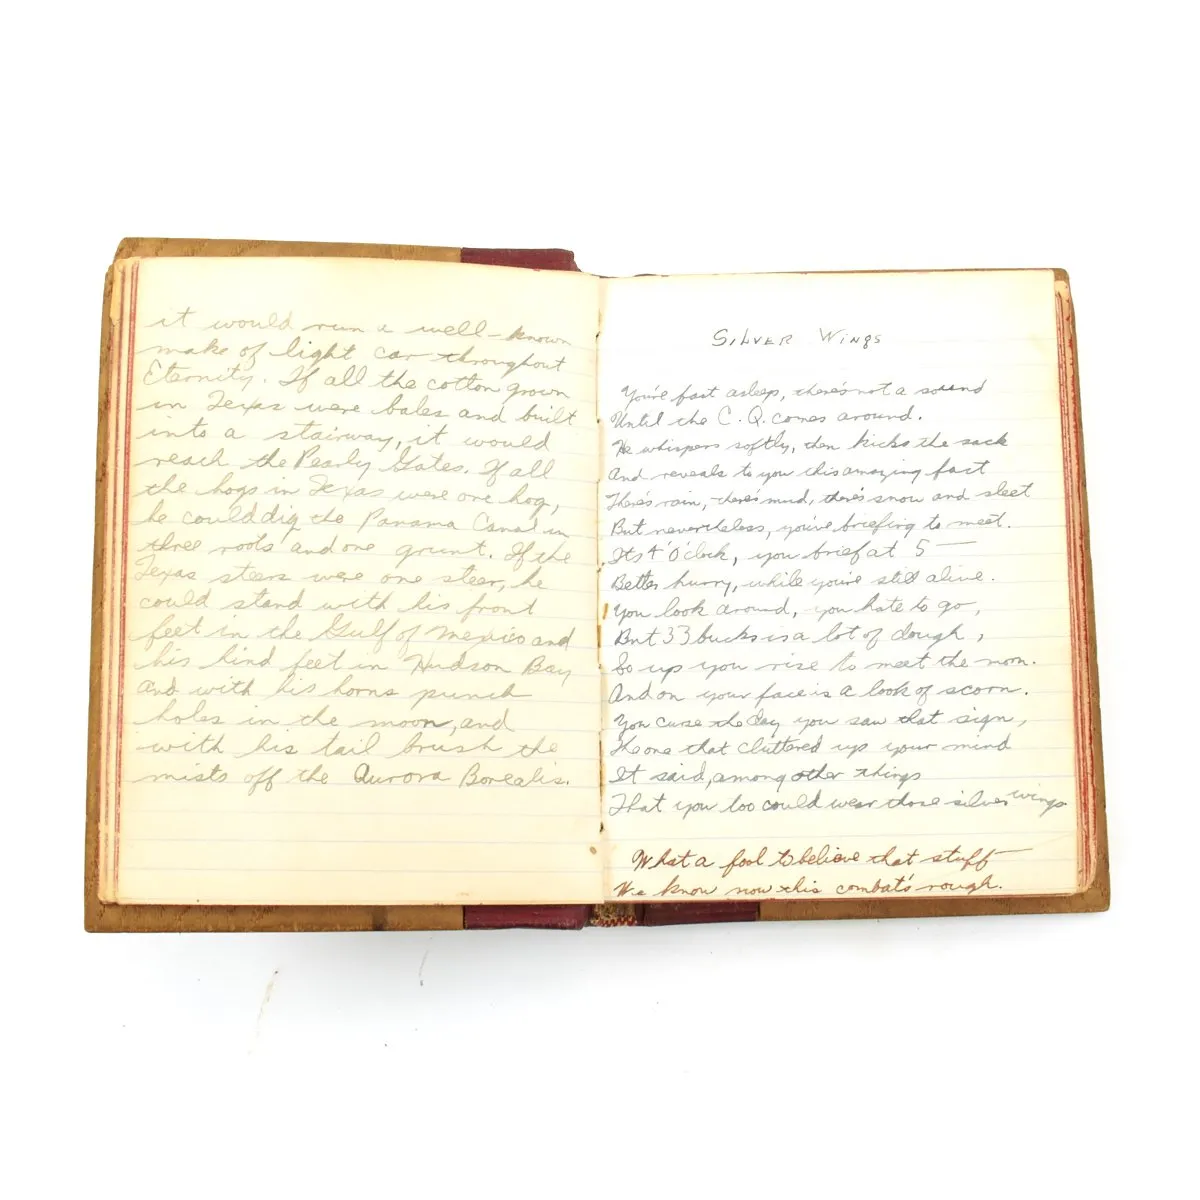 it would run a well-known
make of light car throughout
Eternity. If all the cotton grown
in Texas were bales and built
into a stairway, it would
reach the Pearly Gates. If all
the hogs in Texas were one hog,
he could dig the Panama Canal in
three roots and one grunt. If the
Texas steers were one steer, he
could stand with his front
feet in the Gulf of Mexico and
his hind feet in Hudson Bay
and with his horns punch
holes in the moon, and
with his tail brush the
mists off the Aurora Borealis.
SILVER WINGS
You're fast asleep, there's not a sound
Until the C.Q. comes around.
He whispers softly, then kicks the sack
And reveals to you this amazing fact
There's rain, there's mud, there's snow and sleet
But nevertheless, you've briefing to meet.
Its 4 O'clock, you brief at 5 —
Better hurry, while you're still alive.
You look around, you hate to go,
But 33 bucks is a lot of dough,
So up you rise to meet the morn.
And on your face is a look of scorn.
You curse the day you saw that sign,
The one that cluttered up your mind
It said, among other things
That you too could wear those silver wings
What a fool to believe that stuff
We know now this combat's rough.